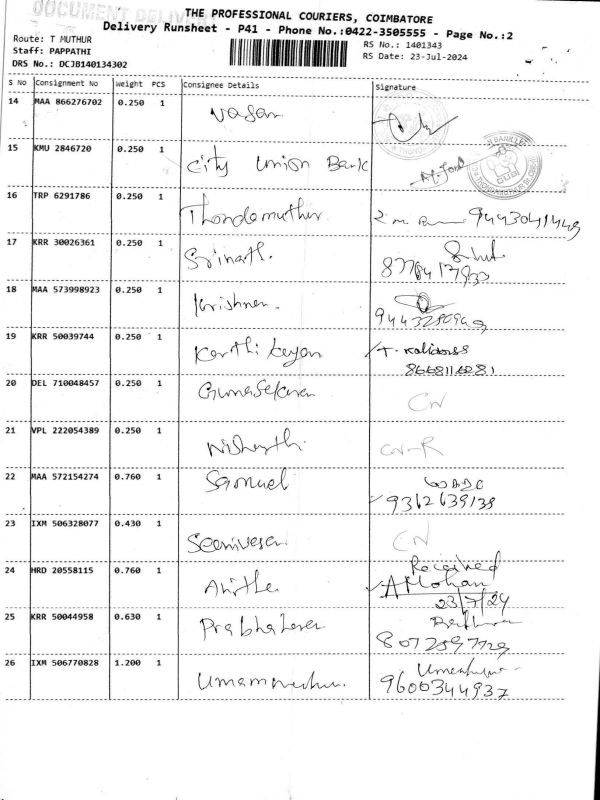 DOCUMENT DELIVERY
THE PROFESSIONAL COURIERS, COIMBATORE
Delivery Runsheet - P41 - Phone No.:0422-3505555 - Page No.:2
Route: T MUTHUR
Staff: PAPPATHI
DRS No.: DCJB140134302
RS No.: 1401343
RS Date: 23-Jul-2024
S No Consignment No Weight PCS Consignee Details Signature
14 MAA 866276702 0.250 1 Vasan
15 KMU 2846720 0.250 1 City Union Bank
16 TRP 6291786 0.250 1 Thondamuthur 9443041449
17 KRR 30026361 0.250 1 Srinath.
18 MAA 573998923 0.250 1 Krishnan.
19 KRR 50039744 0.250 1 Karthikeyan T. Kalidoss
8668116881
20 DEL 710048457 0.250 1 Gunasekaran CN
21 VPL 222054389 0.250 1 CN-R
22 MAA 572154274 0.760 1 Samuel
9362639139
23 IXM 506328077 0.430 1 Seenivasan CN
24 HRD 20558115 0.760 1 Received
A Mohan
23/7/24
25 KRR 50044958 0.630 1 Prabhakaran
8072597729
26 IXM 506770828 1.200 1
9600344937